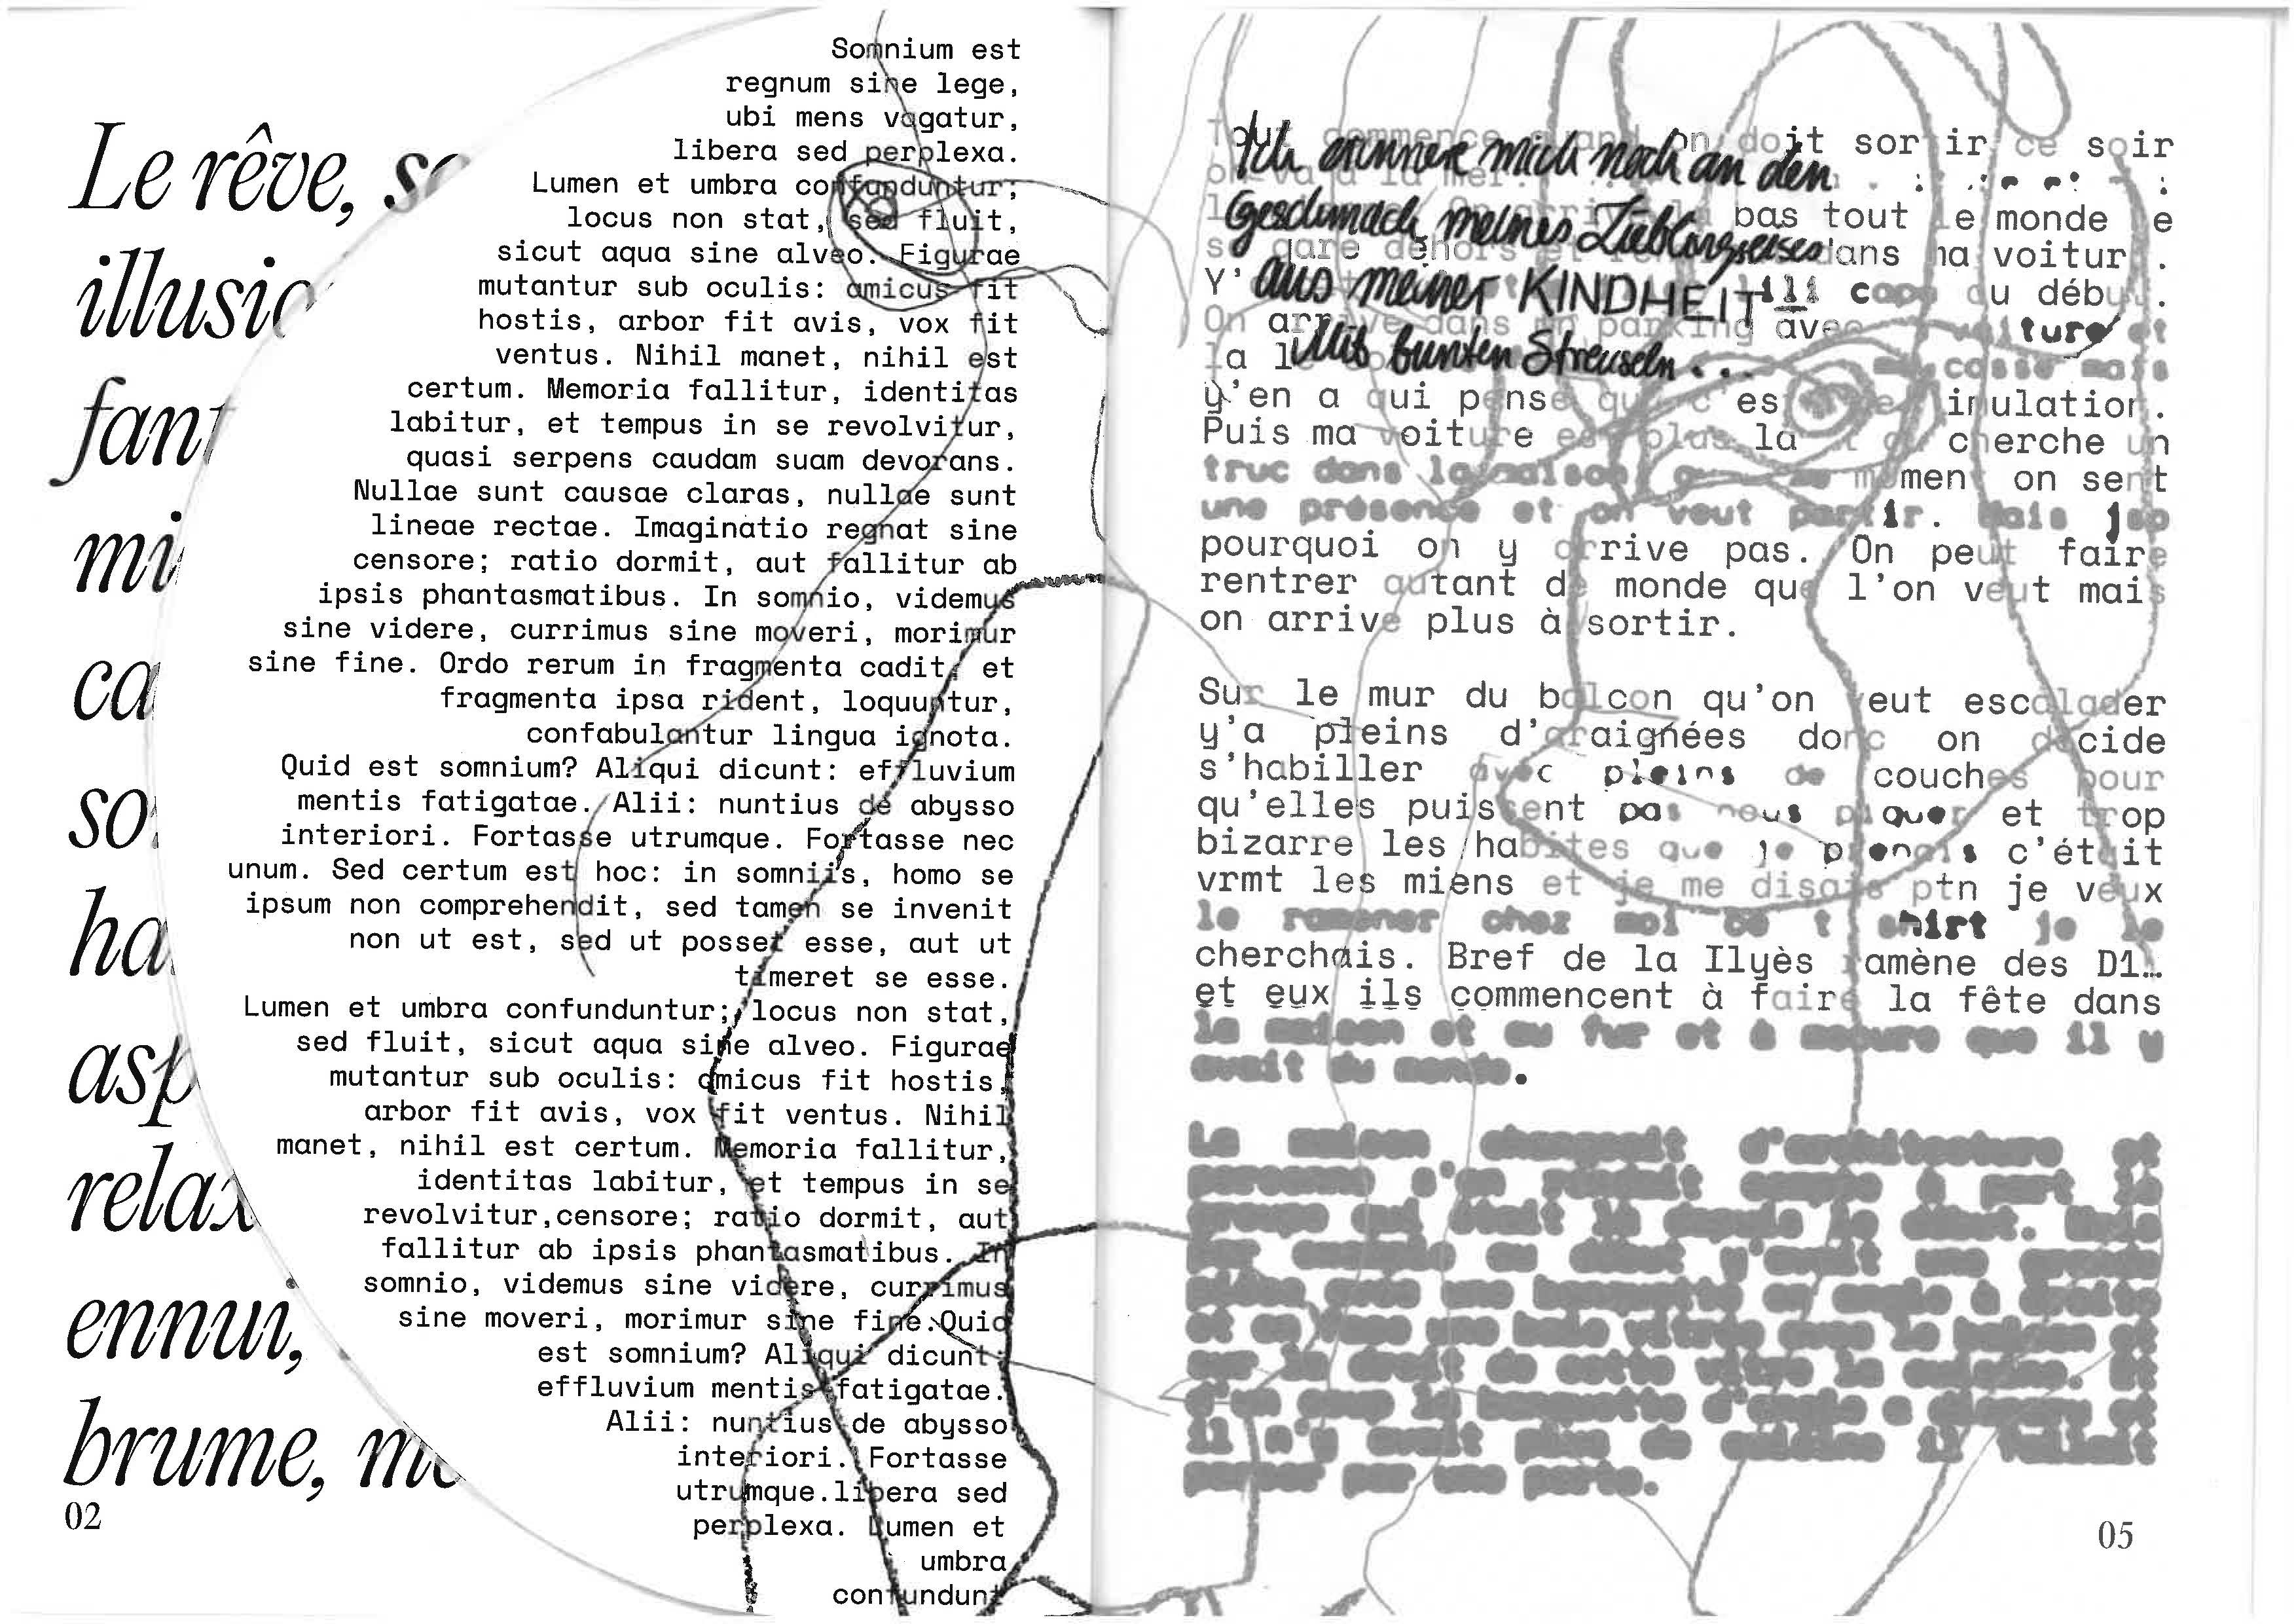 Le rêve,
illusio
fant
mi
ca
so
ha
asp
relax
ennui,
brume, mo
02
Somnium est
regnum sine lege,
ubi mens vagatur,
libera sed perplexa.
Lumen et umbra confunduntur;
locus non stat, sed fluit,
sicut aqua sine alveo. Figurae
mutantur sub oculis: amicus fit
hostis, arbor fit avis, vox fit
ventus. Nihil manet, nihil est
certum. Memoria fallitur, identitas
labitur, et tempus in se revolvitur,
quasi serpens caudam suam devorans.
Nullae sunt causae claras, nullae sunt
lineae rectae. Imaginatio regnat sine
censore; ratio dormit, aut fallitur ab
ipsis phantasmatibus. In somnio, videmus
sine videre, currimus sine moveri, morimur
sine fine. Ordo rerum in fragmenta cadit, et
fragmenta ipsa rident, loquuntur,
confabulantur lingua ignota.
Quid est somnium? Aliqui dicunt: effluvium
mentis fatigatae. Alii: nuntius de abysso
interiori. Fortasse utrumque. Fortasse nec
unum. Sed certum est hoc: in somniis, homo se
ipsum non comprehendit, sed tamen se invenit
non ut est, sed ut posset esse, aut ut
timeret se esse.
Lumen et umbra confunduntur; locus non stat,
sed fluit, sicut aqua sine alveo. Figurae
mutantur sub oculis: amicus fit hostis,
arbor fit avis, vox fit ventus. Nihil
manet, nihil est certum. Memoria fallitur,
identitas labitur, et tempus in se
revolvitur,censore; ratio dormit, aut
fallitur ab ipsis phantasmatibus. In
somnio, videmus sine videre, currimus
sine moveri, morimur sine fine.Quid
est somnium? Aliqui dicunt:
effluvium mentis fatigatae.
Alii: nuntius de abysso
interiori. Fortasse
utrumque.libera sed
perplexa. Lumen et
umbra
confundunt
Tout commence quand on doit sortir ce soir
Ich erinnere mich noch an den
on va à la mer.
Geschmack meines Lieblingseises
bas tout le monde se
se gare dehors et dans ma voiture.
aus meiner KINDHEIT
Y' du début.
On arrive dans un parking avec voiture et
Mit bunten Streuseln...
la casse mais
y'en a qui pense que c'est simulation.
Puis ma voiture est plus la et on cherche un
truc dans la maison moment on sent
une présence et on veut partir. Mais jsp
pourquoi on y arrive pas. On peut faire
rentrer autant de monde que l'on veut mais
on arrive plus à sortir.
Sur le mur du balcon qu'on veut escalader
y'a pleins d'araignées donc on décide
s'habiller avec pleins de couches pour
qu'elles puissent pas nous piquer et trop
bizarre les habites que je prenais c'était
vrmt les miens et je me disais ptn je veux
le ramener chez moi ce t shirt je le
cherchais. Bref de la Ilyès ramène des D1…
et eux ils commencent à faire la fête dans
la maison et au fur et à mesure que il y
avait du monde.
La maison changeait d'architecture et
personne s'en rendait compte à part le
groupe qui était là depuis le début. Mais
par exemple au début y'avait une grande
et
sur la droite de cette vitre la cuisine. Et
il n'y avait plus de cuisine il fallait
passer par une porte.
05